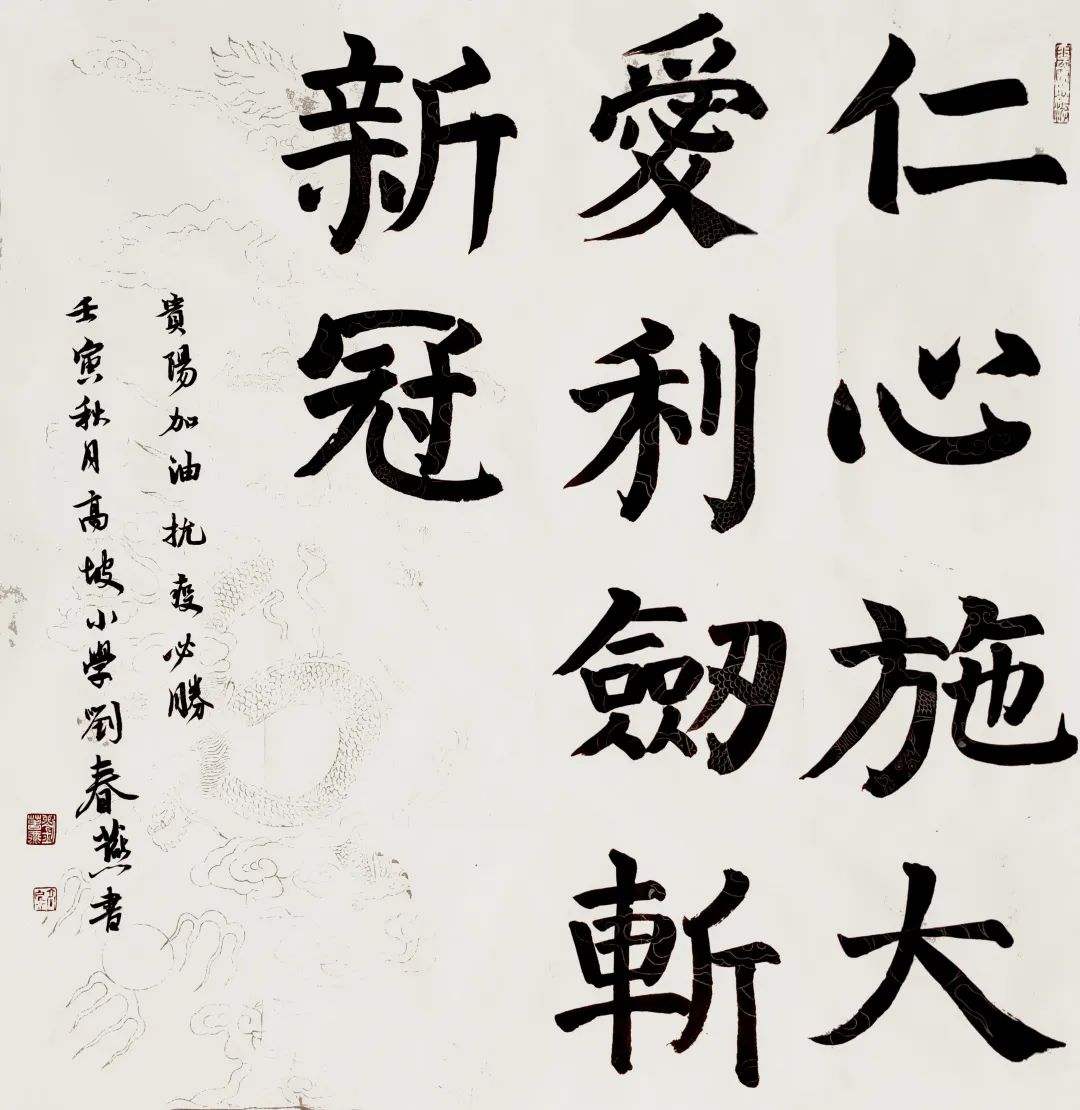 仁心施大
愛利劒斬
新冠
貴陽加油抗疫必勝
壬寅秋月高坡小學劉春燕书